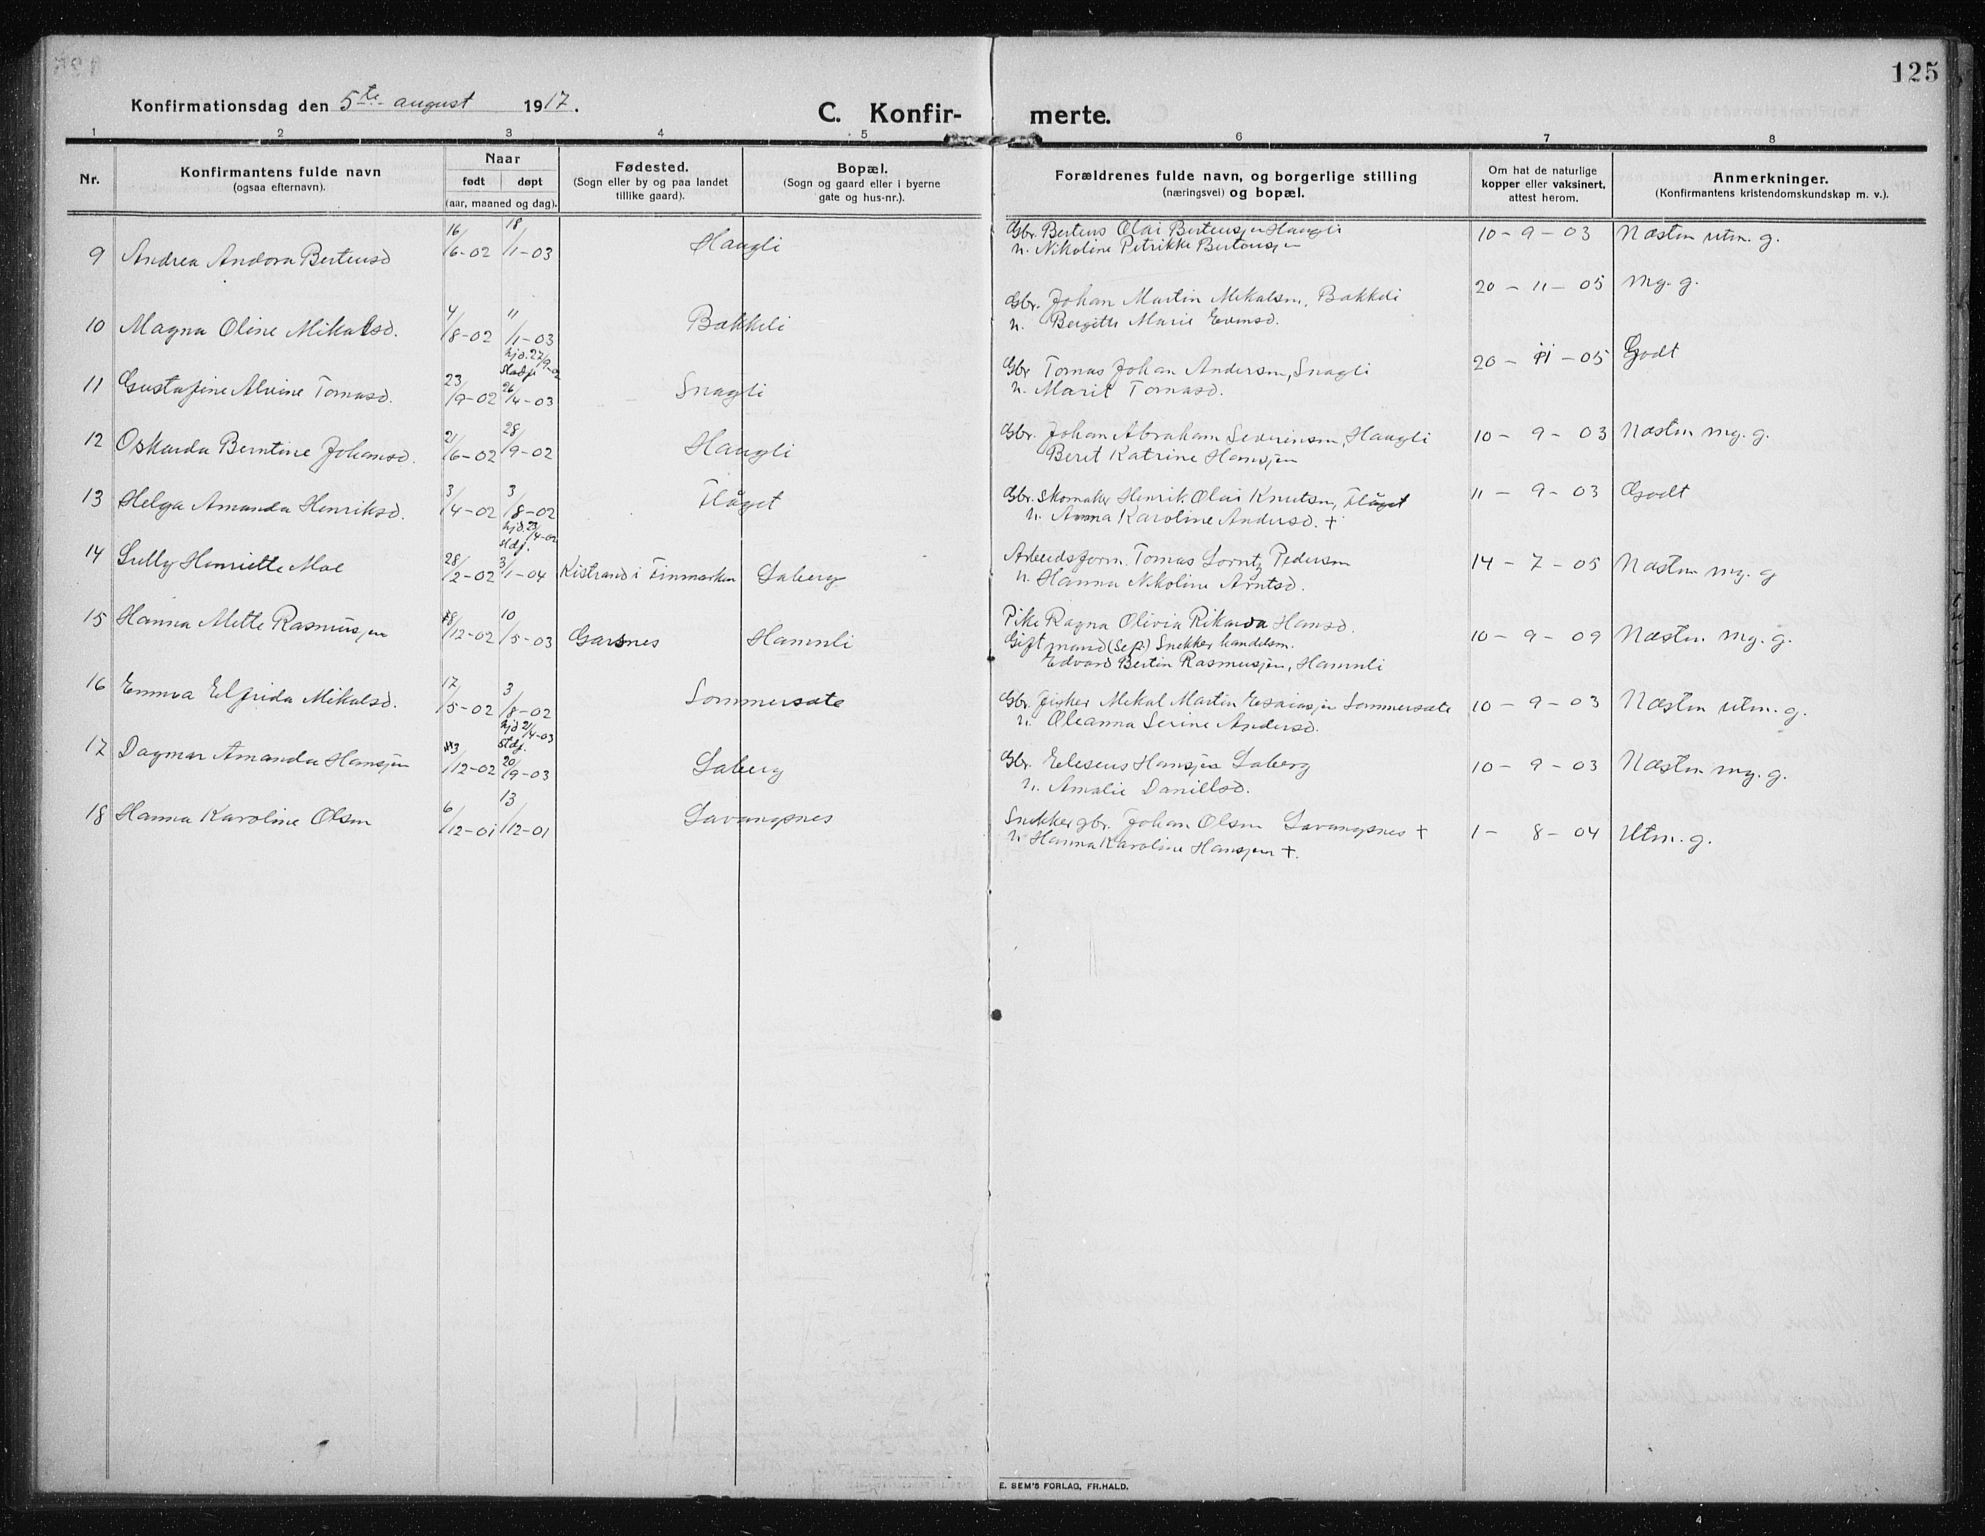 125
Konfirmationsdag den 5te august 1917.
C. Konfir- merte.
1 2 3 4 5 6 7 8
Nr.
Konfirmantens fulde navn
(ogsaa efternavn).
Naar
født døpt
(aar, maaned og dag).
Fødested.
(Sogn eller by og paa landet
tillike gaard).
Bopæl.
(Sogn og gaard eller i byerne
gate og hus-nr.).
Forældrenes fulde navn, og borgerlige stilling
(næringsvei) og bopæl.
Om hat de naturlige
kopper eller vaksinert,
attest herom.
Anmerkninger.
(Konfirmantens kristendomskundskap m. v.).
9 Andrea Andora Bertensd 16/6-02 18/1-03 Haugli Gbr. Bertens Olai Bertensjen Haugli 10-9-03 Næsten utm. g.
n. Nikoline Petrikke Bertensjen
10 Magna Oline Mikalsd. 4/8-02 11/1-03 Bakkeli Gbr. Johan Martin Mikalsen, Bakkeli 20-11-05 mg. g.
n. Bergitte Marie Evensd.
hjd. 27/9-02
stadf.
11 Gustafine Alvine Tomasd. 23/9-02 26/4-03 Snagli Gbr Tomas Johan Andersen, Snagli 20-11-05 Godt
n. Marit Tomasd.
12 Oskarda Berntine Johansd. 21/6-02 28/9-02 Haugli Gbr. Johan Abraham Severinsen, Haugli 10-9-03 Næsten mg. g.
Beret Katrine Hansjen
13 Helga Amanda Henriksd. 3/4-02 3/8-02 Flåget Gbr. Skomaker Henrik Olai Knutsen, Flåget 11-9-03 Godt
n. Anna Karoline Andersd. +
hjd. 23/4-02
stdf.
14 Lully Henriette Moe 28/2-02 3/1-04 Kistrand i Finmarken Laberg Arbeidsform. Tomas Lorntz Pedersen 14-7-05 Næsten mg. g
n. Hanna Nikoline Arntsd.
15 Hanna Mette Rasmusjen 18/12-02 10/5-03 Garsnes Hamnli Pike Ragna Olivia Rikarda Hansd. 10-9-09 Næsten mg. g.
Gift mand (sep.) Snekker handelsm.
Edvard Bertin Rasmusjen, Hamnli
16 Emma Elfrida Mikalsd. 17/5-02 3/8-02 Sommersæte Gbr. fisker Mekal Martin Esaiasjen Sommersæte 10-9-03 Næsten utm. g.
n. Oleanna Serine Andersd.
hjd 21/4-03
stdf.
17 Dagmar Amanda Hansjen 13/12-02 20/9-03 Laberg Gbr. Eleseus Hansjen Laberg 10-9-03 Næsten mg. g.
n. Amalie Danielsd.
18 Hanna Karoline Olsen 6/12-01 13/12-01 Lavangsnes Snekker gbr. Johan Olsen Lavangsnes + 1-8-04 Utm. g.
n. Hanna Karoline Hansjen +.
E. SEM'S FORLAG, FR.HALD.
4